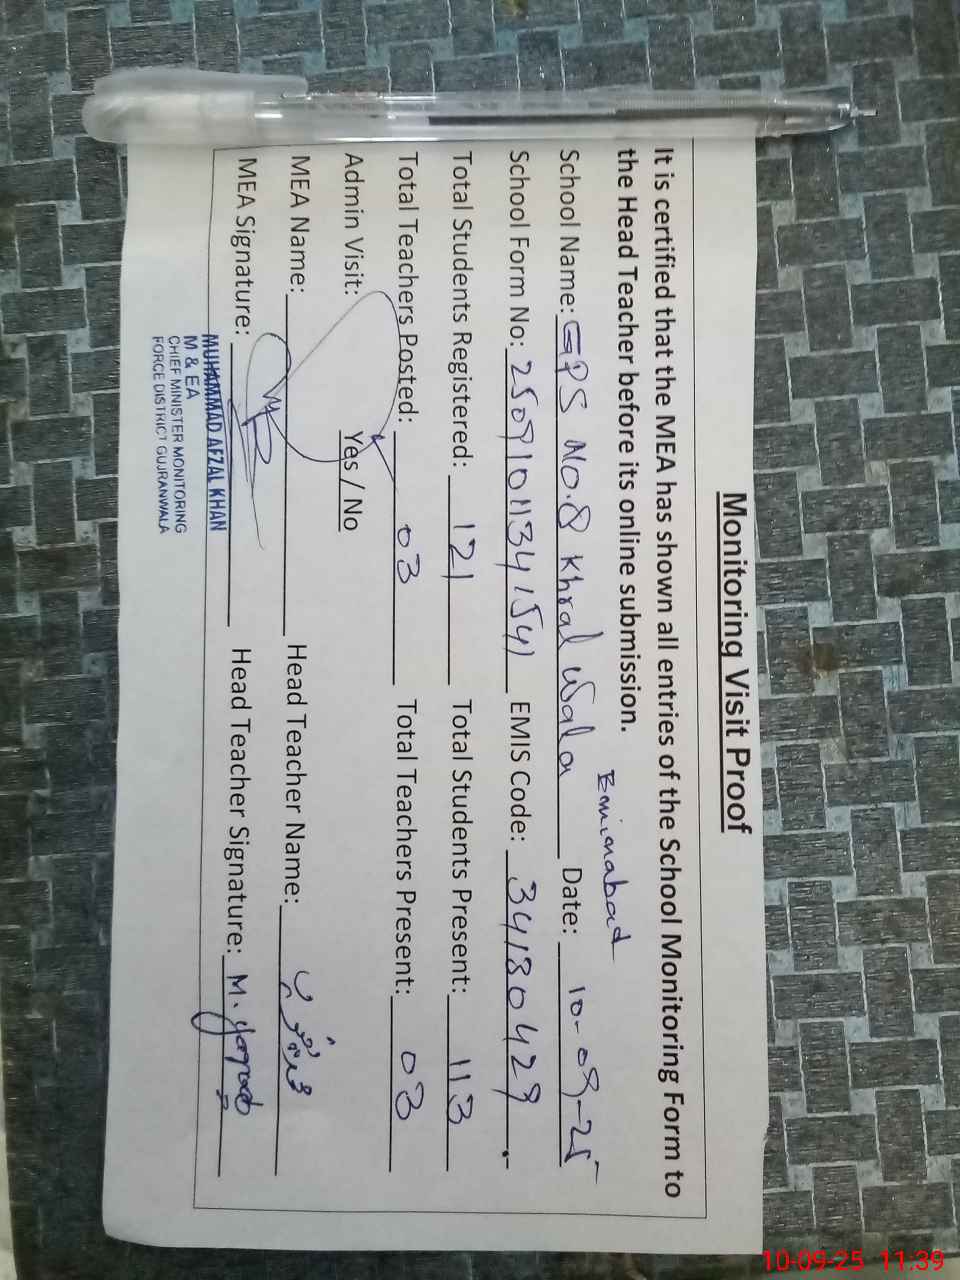 Monitoring Visit Proof
It is certified that the MEA has shown all entries of the School Monitoring Form to
the Head Teacher before its online submission.
Eminabad
School Name: GPS NO.8 Khral Wala Date: 10-09-25
School Form No: 2509101134154 EMIS Code: 34130429
Total Students Registered: 121 Total Students Present: 113
Total Teachers Posted: 03 Total Teachers Present: 03
Admin Visit: Yes / No
MEA Name: Head Teacher Name: محمد یعقوب
MEA Signature: Head Teacher Signature: M. Yaqoob
MUHAMMAD AFZAL KHAN
M & EA
CHIEF MINISTER MONITORING
FORCE DISTRICT GUJRANWALA
10-09-25 11:39